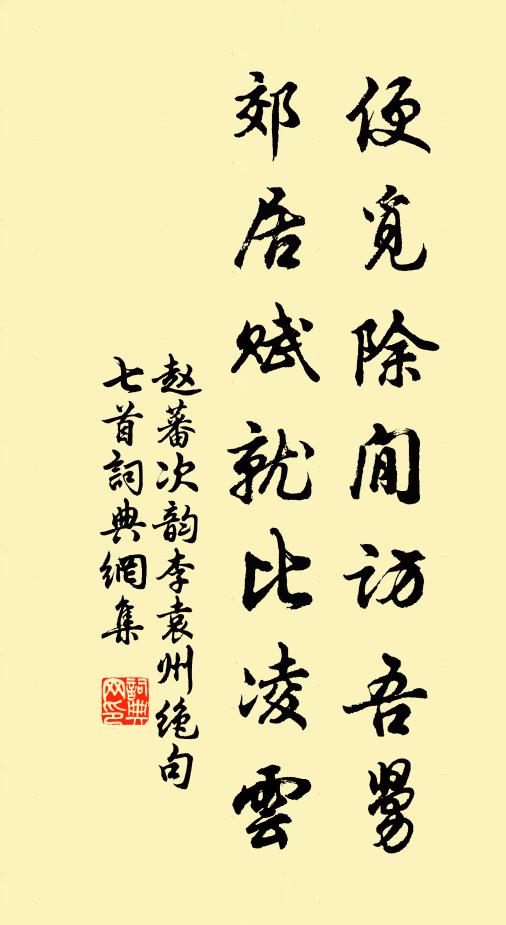 便覓除閒訪吾舅
郊居賦就比凌雲
赵蕃次韵李袁州绝句
七首詞典網集
詞典网印